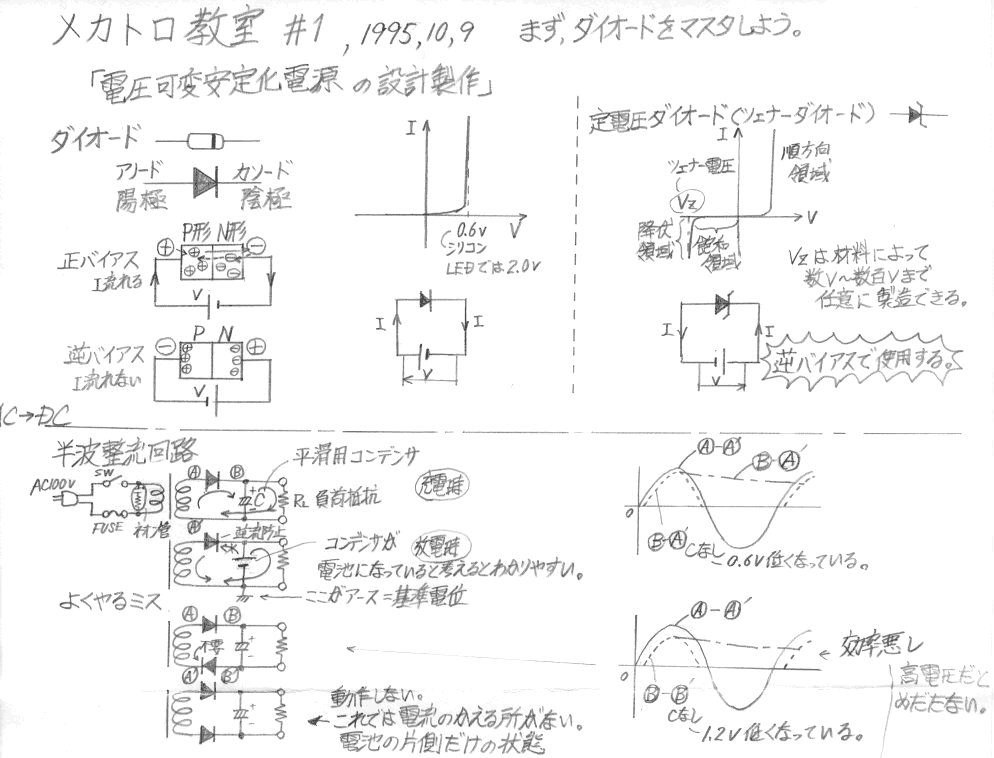 メカトロ教室 #1, 1995,10,9 まず,ダイオードをマスタしよう。
「電圧可変安定化電源の設計製作」
ダイオード
アノード カソード
陽極 陰極
P形 N形
⊕ ⊖
正バイアス
I 流れる
V
P N
⊖ ⊕
逆バイアス
I 流れない
V
I
V
0.6V
シリコン
LEDでは2.0V
I I
V
定電圧ダイオード(ツェナーダイオード)
I
ツェナー電圧
Vz
順方向
領域
V
降伏
領域
飽和
領域
Vzは材料によって
数V〜数百Vまで
任意に製造できる。
I I
V
逆バイアスで使用する。
AC→DC
半波整流回路
平滑用コンデンサ
AC100V
SW
FUSE
ネオン管
Ⓐ Ⓑ
C
RL 負荷抵抗
充電時
Ⓐ'
逆流防止
コンデンサが 放電時
電池になっていると考えるとわかりやすい。
ここがアース=基準電位
よくやるミス
Ⓐ Ⓑ
不要
Ⓐ' Ⓑ'
動作しない。
これでは電流のかえる所がない。
電池の片側だけの状態
Ⓐ-Ⓐ'
Ⓑ-Ⓐ'
0
Ⓑ-Ⓐ'
Cなし
0.6V低くなっている。
Ⓐ-Ⓐ'
効率悪し
0
Ⓑ-Ⓑ'
Cなし
1.2V低くなっている。
高電圧だと
めだたない。